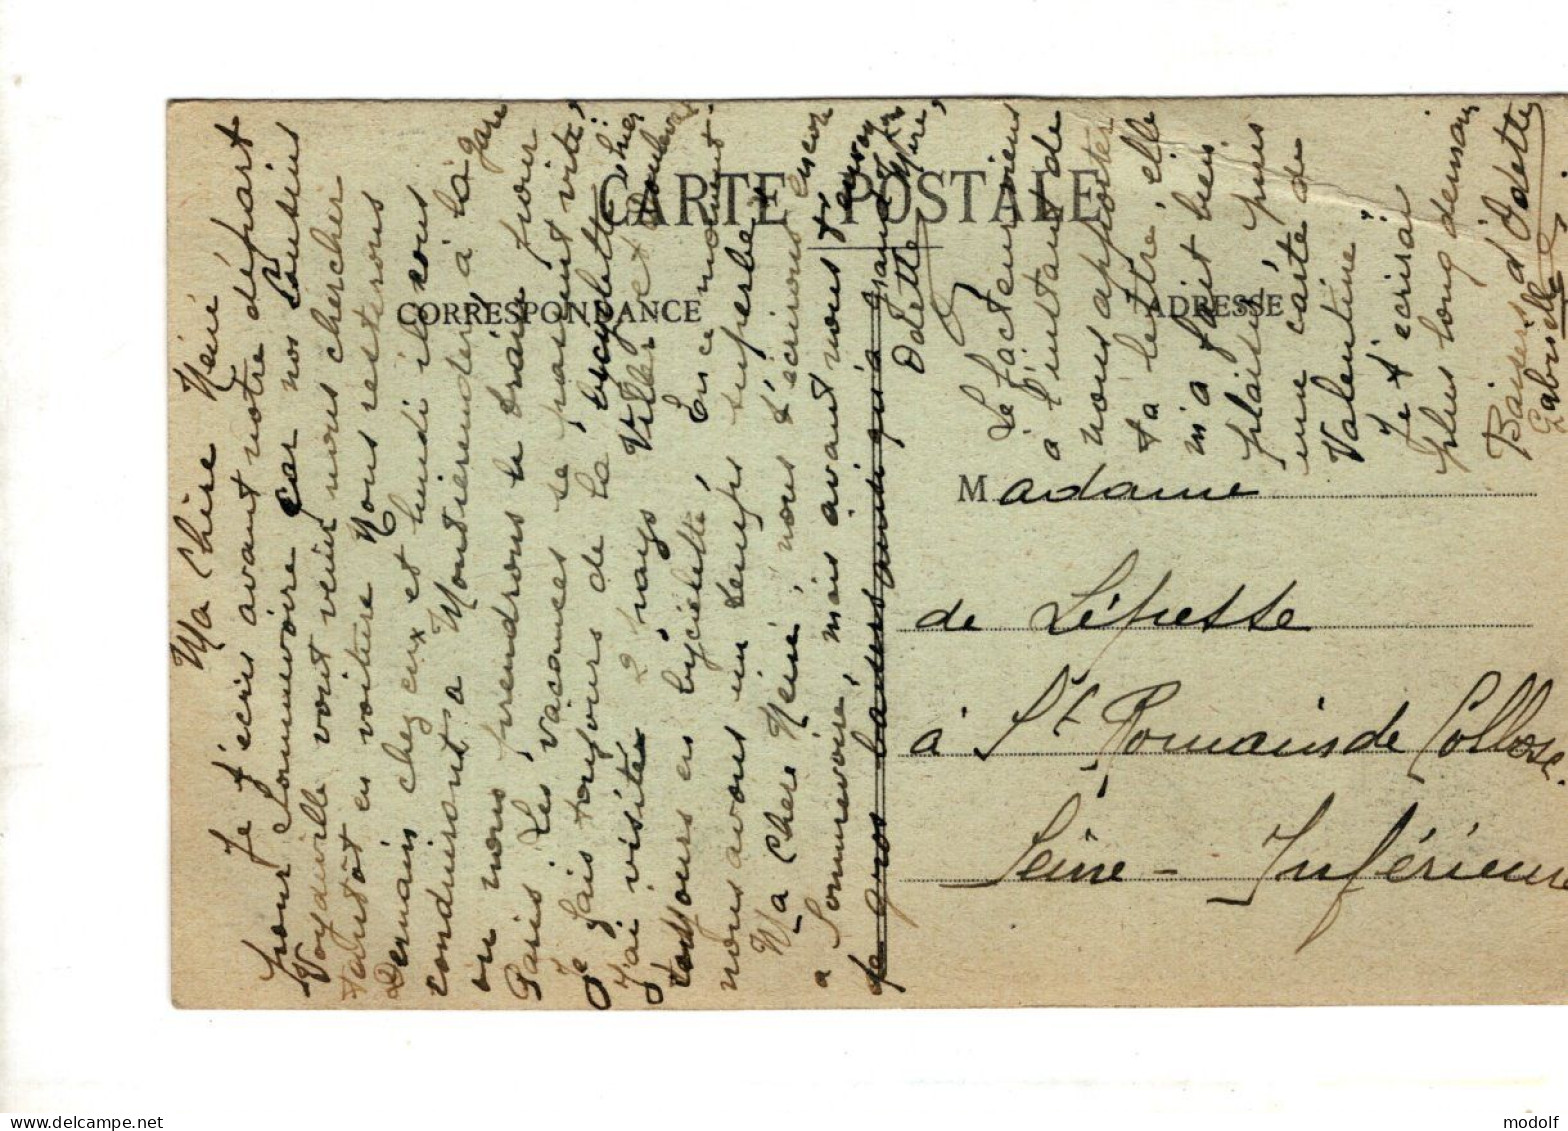 CARTE POSTALE
CORRESPONDANCE
ADRESSE
Ma Chère Néné
Je t'écris avant notre départ
pour Sommevoire car nos Cousins
vont venir nous chercher
tantôt en voiture Nous resterons
Demain chez eux et lundi ils nous
conduiront a Montierender à la gare
ou nous prendrons le train pour
Paris Les vacances se passent vite,
Je fais toujours de la bicyclette hier
J'ai visité 2 pays Viller et Boulevoz
toujours en byciclette En ce moment
nous avons un temps superbe
Ma Chere Néné, nous t'écrirons encore
a Sommevoire, mais avant nous t'envoyons
de gros baisers ainsi qu'à grand Mère,
Odette
Le facteur vient
à l'instant de
nous apporter
ta lettre, elle
m'a fait bien
plaisir, puis
une carte de
Valentine
Je t'écrirai
plus long demain
Baisers d'Odette
Madame
de Lépesse
à St Romains de Colbosc
Seine-Inférieure
www.delcampe.net
modolf